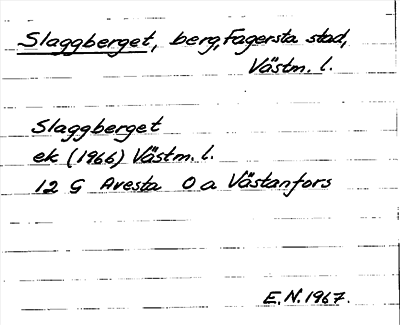 Slaggberget, berg, Fagersta stad,
Västm. l.
Slaggberget
ek (1966) Västm. l.
12 G Avesta 0 a Västanfors
E. N. 1967.